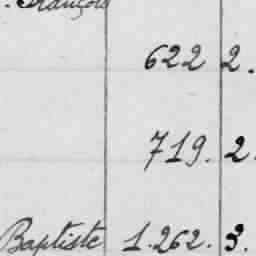 . François
622 2.
719. 2.
Baptiste 1.262. 3.